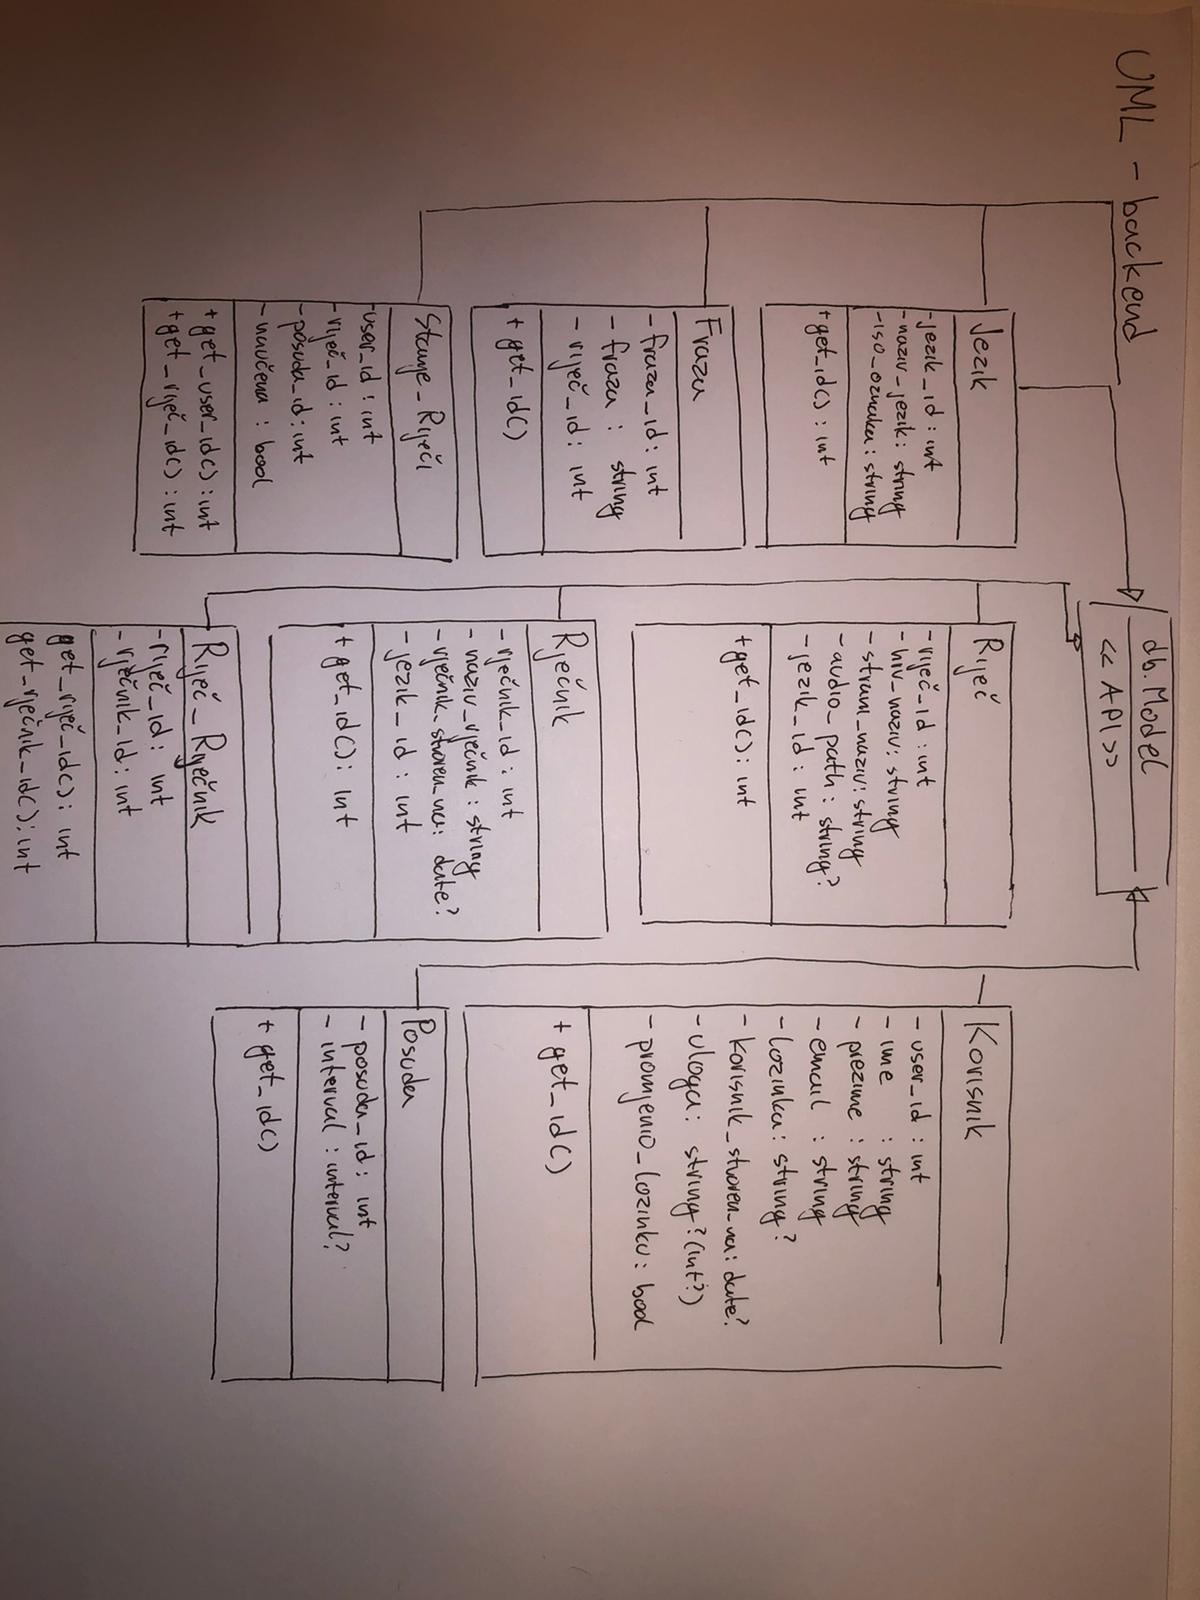 UML - backend
db.Model
<< API >>
Jezik
- jezik_id : int
- naziv_jezik : string
- iso_oznaka : string
+ get_id() : int
Fraza
- fraza_id : int
- fraza : string
- riječ_id : int
+ get_id()
Stanje_Riječi
- user_id : int
- riječ_id : int
- posuda_id : int
- naučena : bool
+ get_user_id() : int
+ get_riječ_id() : int
Riječ
- riječ_id : int
- hrv_naziv : string
- strani_naziv : string
- audio_path : string?
- jezik_id : int
+ get_id() : int
Rječnik
- rječnik_id : int
- naziv_rječnik : string
- rječnik_stvoren_na : date?
- jezik_id : int
+ get_id() : int
Riječ_Rječnik
- riječ_id : int
- rječnik_id : int
get_riječ_id() : int
get_rječnik_id() : int
Korisnik
- user_id : int
- ime : string
- prezime : string
- email : string
- lozinka : string?
- korisnik_stvoren_na : date?
- uloga : string? (int?)
- promjenio_lozinku : bool
+ get_id()
Posuda
- posuda_id : int
- interval : interval?
+ get_id()